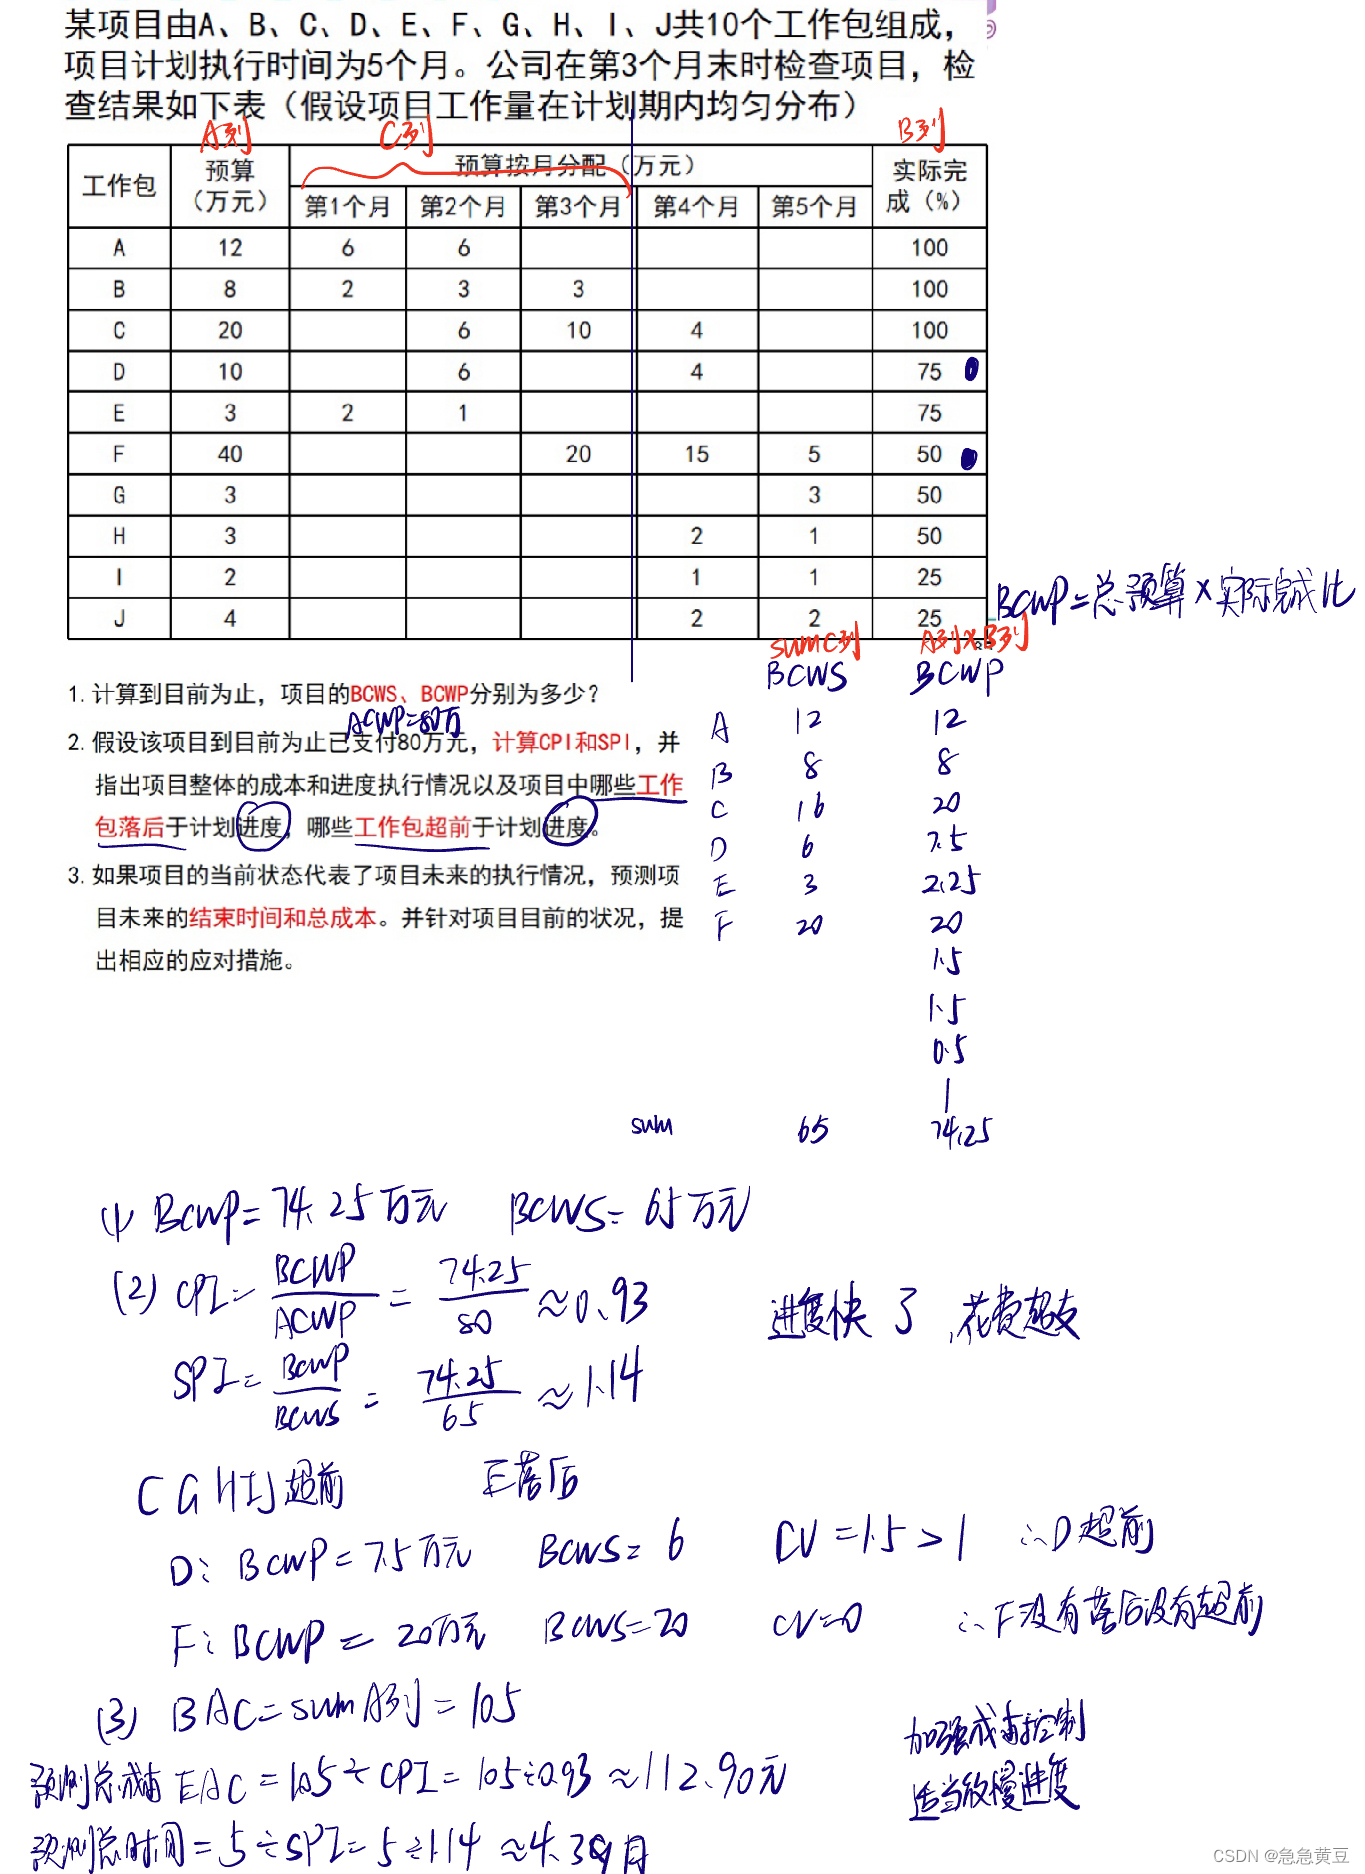 某项目由A、B、C、D、E、F、G、H、I、J共10个工作包组成，
项目计划执行时间为5个月。公司在第3个月末时检查项目，检
查结果如下表（假设项目工作量在计划期内均匀分布）
A列 C列 B列
工作包 预算（万元） 预算按月分配（万元） 实际完成（%）
第1个月 第2个月 第3个月 第4个月 第5个月
A 12 6 6 100
B 8 2 3 3 100
C 20 6 10 4 100
D 10 6 4 75
E 3 2 1 75
F 40 20 15 5 50
G 3 3 50
H 3 2 1 50
I 2 1 1 25
J 4 2 2 25
BCWP=总预算×实际完成比
sumC列 A列×B列
BCWS BCWP
1. 计算到目前为止，项目的BCWS、BCWP分别为多少？
ACWP=80万
2. 假设该项目到目前为止已支付80万元，计算CPI和SPI，并
指出项目整体的成本和进度执行情况以及项目中哪些工作
包落后于计划进度，哪些工作包超前于计划进度。
3. 如果项目的当前状态代表了项目未来的执行情况，预测项
目未来的结束时间和总成本。并针对项目目前的状况，提
出相应的应对措施。
A 12 12
B 8 8
C 16 20
D 6 7.5
E 3 2.25
F 20 20
1.5
1.5
0.5
1
sum 65 74.25
(1) BCWP=74.25万元 BCWS=65万元
(2) CPI=BCWP/ACWP=74.25/80≈0.93 进度快了,花费超支
SPI=BCWP/BCWS=74.25/65≈1.14
C G H I J 超前 E落后
D: BCWP=7.5万元 BCWS=6 CV=1.5>1 ∴D超前
F: BCWP=20万元 BCWS=20 CV=0 ∴F没有落后没有超前
(3) BAC=sumA列=105
加强成本控制
预测总成本EAC=105÷CPI=105÷0.93≈112.90元
适当放慢进度
预测总时间=5÷SPI=5÷1.14≈4.39月
CSDN @急急黄豆